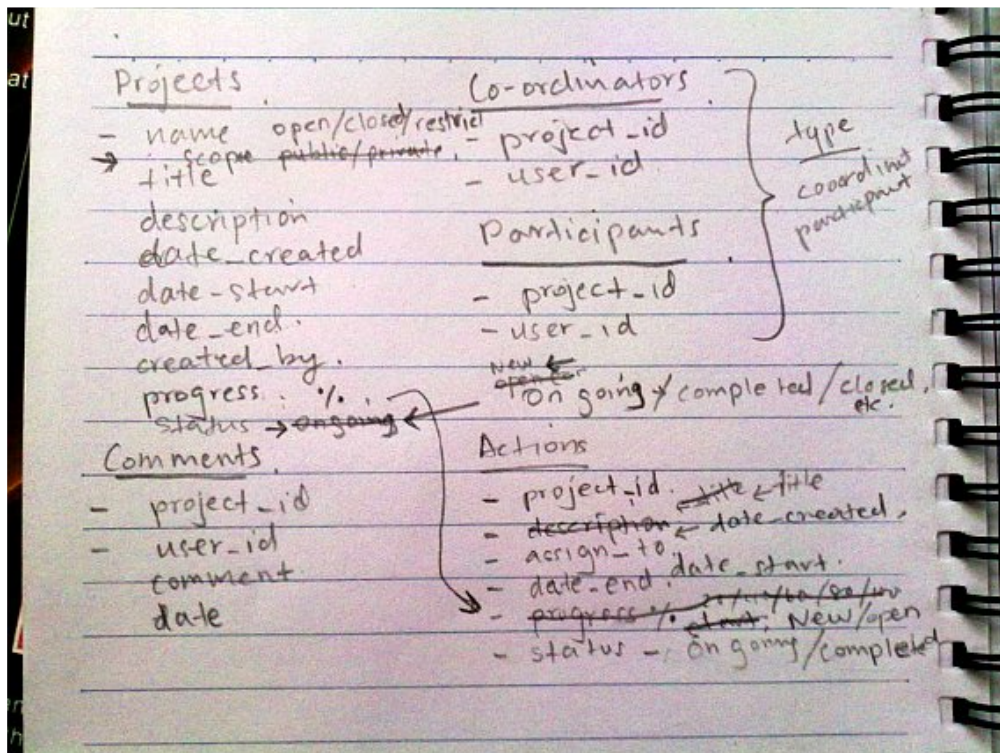 ut
at
Projects
- name open/closed/restrict
scope public/private
title
description
date_created
date-start
date_end.
created_by.
progress. %.
status → ongoing
Comments
- project_id
- user_id
comment
date
Co-ordinators
- project_id
- user_id
Participants
- project_id
- user_id
type
cooordinat
participant
New
On going / completed / closed.
etc.
Actions
- project_id. title ← title
- description ← date_created.
- assign_to
- date_end. date_start.
- progress %. start. New/open
- status - On going/completed